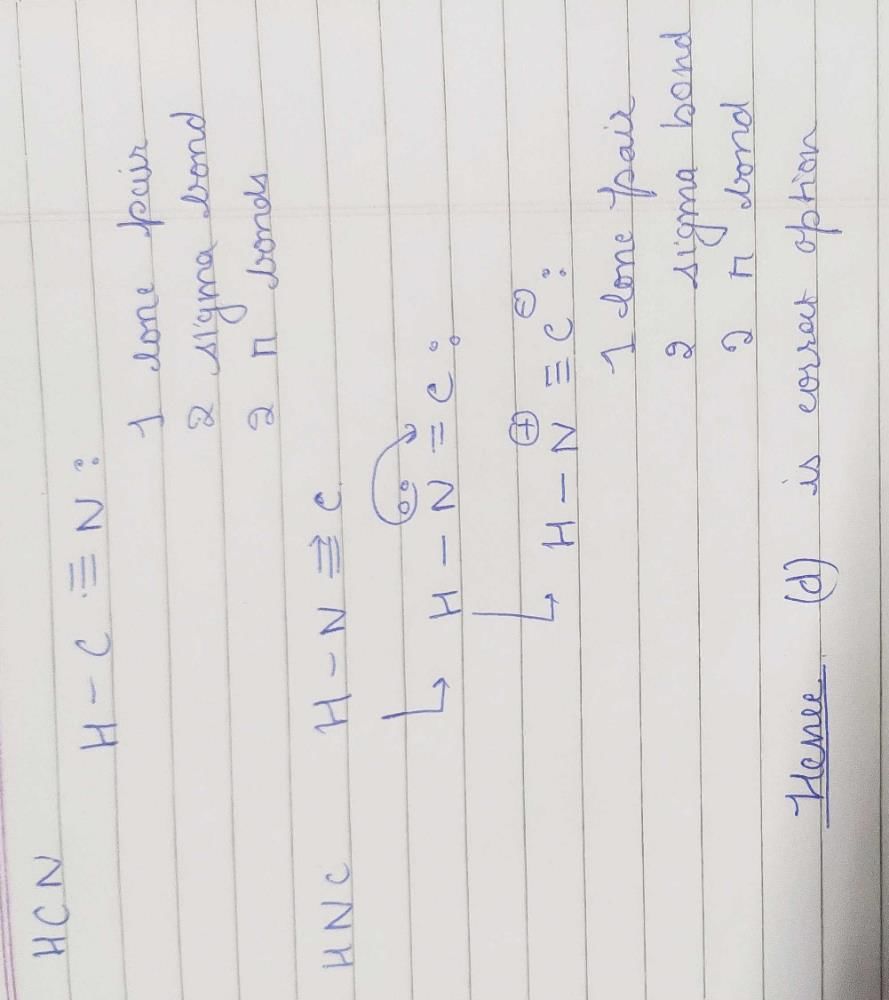 HCN
H - C ≡ N :
1 lone pair
2 sigma bond
2 π bonds
HNC H - N ⇛ C
↳ H - N̈ = C :
↳ H - N⊕ ≡ C⊖ :
1 lone pair
2 sigma bond
2 π bond
Hence (d) is correct option